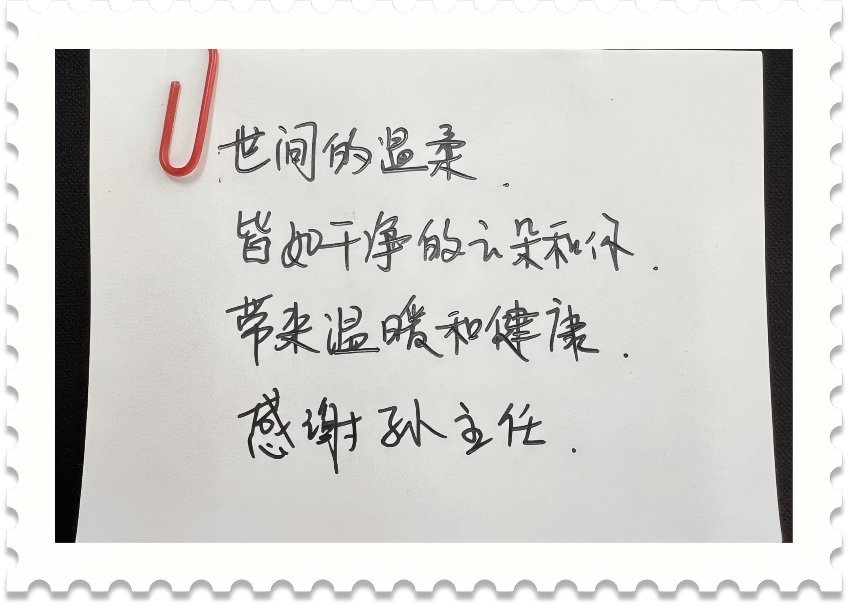 世间的温柔.
皆如干净的云朵和你.
带来温暖和健康.
感谢孙主任.